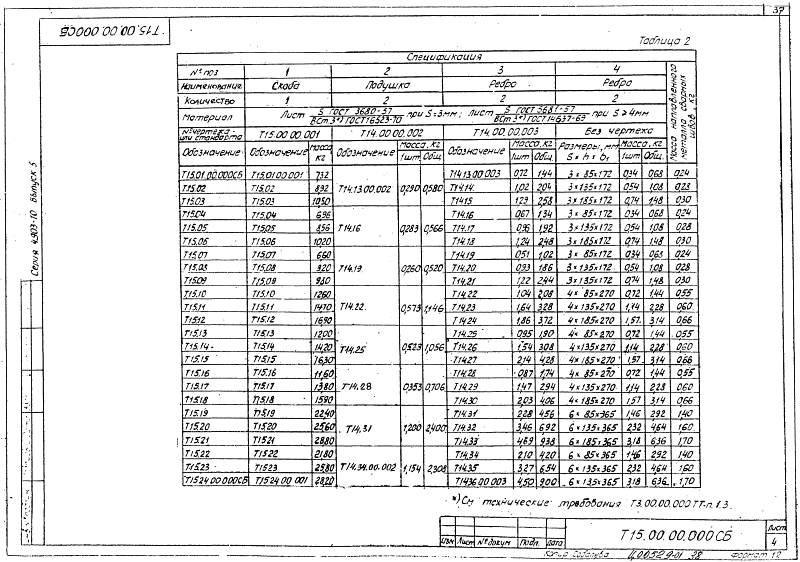 37
Т15.00.00.000СБ
Таблица 2
Серия 4.903-10 Выпуск 5
Спецификация
№ поз 1 2 3 4 Масса наплавленного металла сварных швов, кг
Наименование Скоба Подушка Ребро Ребро
Количество 1 2 2 2
Материал Лист S ГОСТ 3680-57 / ВСт.3*) ГОСТ 16523-70 при S=3мм; Лист S ГОСТ 5681-57 / ВСт.3*) ГОСТ 14637-69 при S≥4мм
№ чертежа или стандарта Т15.00.00.001 Т14.00.00.002 Т14.00.00.003 Без чертежа
Обозначение Обозначение Масса кг Обозначение Масса, кг 1шт Общ. Обозначение Масса, кг 1шт Общ. Размеры, мм S × h × b₁ Масса, кг 1шт Общ.
Т15.01.00.000СБ Т15.01.00.001 7.32 Т14.13.00.003 0,72 1,44 3 × 85×172 0,34 0,68 0,24
Т15.02 Т15.02 8.92 Т14.13.00.002 0,290 0,580 Т14.14 1,02 2,04 3 × 135×172 0,54 1,08 0,28
Т15.03 Т15.03 10.50 Т14.15 1,29 2,58 3 × 185×172 0,74 1,48 0,30
Т15.04 Т15.04 6.96 Т14.16 0,67 1,34 3 × 85×172 0,34 0,68 0,24
Т15.05 Т15.05 8.56 Т14.16 0,283 0,566 Т14.17 0,96 1,92 3 × 135×172 0,54 1,08 0,28
Т15.06 Т15.06 10.20 Т14.18 1,24 2,48 3 × 185×172 0,74 1,48 0,30
Т15.07 Т15.07 6.60 Т14.19 0,51 1,02 3 × 85×172 0,34 0,68 0,24
Т15.08 Т15.08 8.20 Т14.19 0,260 0,520 Т14.20 0,93 1,86 3 × 135×172 0,54 1,08 0,28
Т15.09 Т15.09 9.80 Т14.21 1,22 2,44 3 × 185×172 0,74 1,48 0,30
Т15.10 Т15.10 12.60 Т14.22 1,04 2,08 4 × 85×270 0,72 1,44 0,55
Т15.11 Т15.11 14.70 Т14.22 0,573 1,146 Т14.23 1,64 3,28 4 × 135×270 1,14 2,28 0,60
Т15.12 Т15.12 16.90 Т14.24 1,86 3,72 4 × 185×270 1,57 3,14 0,66
Т15.13 Т15.13 12.00 Т14.25 0,95 1,90 4 × 85×270 0,72 1,44 0,55
Т15.14 Т15.14 14.20 Т14.25 0,523 1,056 Т14.26 1,54 3,08 4×135×270 1,14 2,28 0,60
Т15.15 Т15.15 16.30 Т14.27 2,14 4,28 4×185×270 1,57 3,14 0,66
Т15.16 Т15.16 11.60 Т14.28 0,87 1,74 4 × 85×270 0,72 1,44 0,55
Т15.17 Т15.17 13.80 Т14.28 0,353 0,706 Т14.29 1,47 2,94 4×135×270 1,14 2,28 0,60
Т15.18 Т15.18 15.90 Т14.30 2,03 4,06 4×185×270 1,57 3,14 0,66
Т15.19 Т15.19 22.40 Т14.31 2,28 4,56 6 × 85×365 1,46 2,92 1,40
Т15.20 Т15.20 25.60 Т14.31 1,200 2,400 Т14.32 3,46 6,92 6 ×135×365 2,32 4,64 1,60
Т15.21 Т15.21 28.80 Т14.33 4,69 9,38 6 ×185×365 3,18 6,36 1,70
Т15.22 Т15.22 21.80 Т14.34 2,10 4,20 6 × 85×365 1,46 2,92 1,40
Т15.23 Т15.23 25.80 Т14.34.00.002 1,154 2,308 Т14.35 3,27 6,54 6 ×135×365 2,32 4,64 1,60
Т15.24.00.000СБ Т15.24.00.001 28.20 Т14.36.00.003 4,50 9,00 6 ×135×365 3,18 6,36 1,70
*) См технические требования Т3.00.00.000ТТ-п.1.3.
Изм Лист № докум Подп. Дата
Т15.00.00.000СБ
Лист
4
Копир Формат 12
Ц00529-01 38